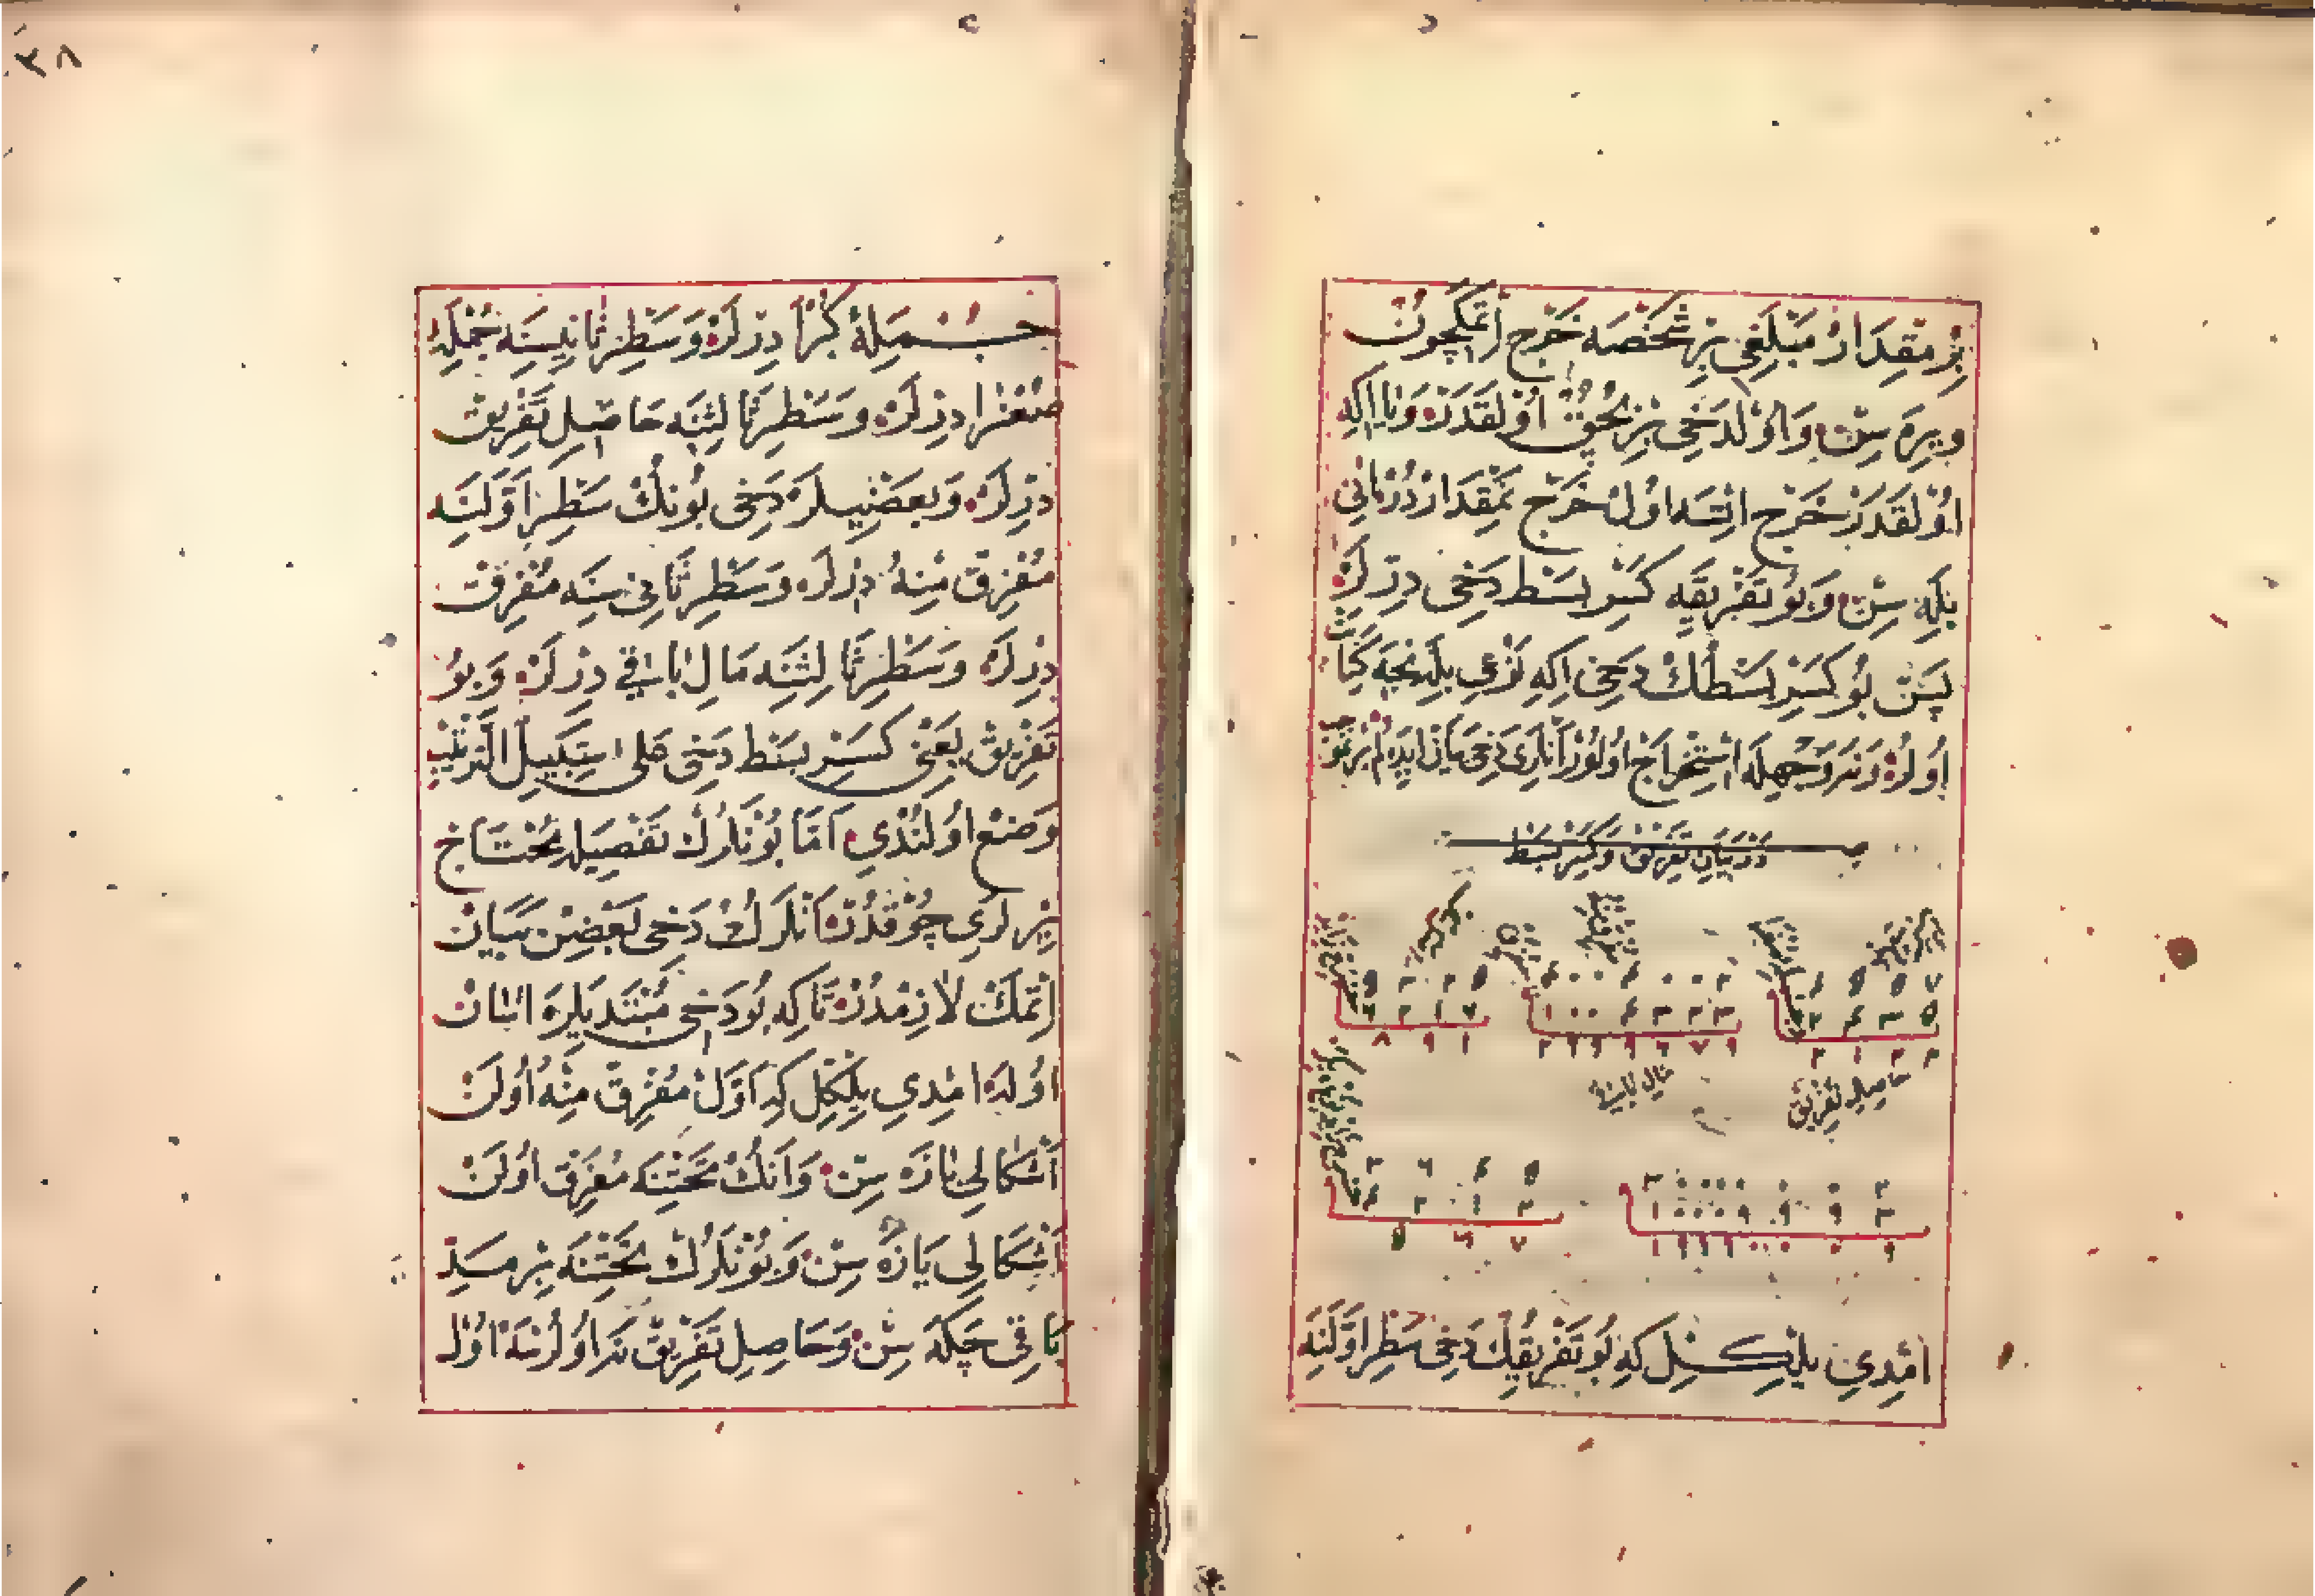 بِرْ مِقْدَارْ مَبْلَغِى بِرْ شَخْصَه خَرْج اِتْمَكْچُونْ
وِيرَه سِنْ وَاوُلْدَخِى بِرْ بُچُقْ اوُلْقَدَرْ وَيَا اِكِى
اوُلْقَدَرْ خَرْج اِتْسَه اوُلْ خَرْج نَمِقْدَارْدُرْ اَنِى
بِلَه سِنْ وَبُو تَفْرِيقَه كَسْرِ بَسْط دَخِى دِرْلَرْ
پَسْ بُو كَسْرِ بَسْطُكْ دَخِى اِكِى نَوْعِى
اوُلُرْ وَنَه وَجْهِلَه اسْتِخْرَاجْ اوُلُورْ اَنْلَرِى دَخِى بَيَانْ اِيدَه لُمْ
دَرْ بَيَانِ تَفْرِيقْ وَكَسْرِ بَسْط
حاصِلِ تَفْرِيقْ
مال الباقى
اِمْدِى بِلْكِلْ كِه بُو تَفْرِيقِكْ دَخِى سَطْرِ اَوَّلِنَه
٣٨
جُمْلَهٔ كُبْرَا دِرْلَرْ وَسَطْرِ ثَانِيسِنَه جُمْلَهٔ
صُغْرَا دِرْلَرْ وَسَطْرِ ثَالِثِنَه حَاصِلِ تَفْرِيقْ
دِرْلَرْ وَبَعْضِيلَرْ دَخِى بُونُكْ سَطْرِ اَوَّلِنَه
مُفْرِقْ مِنْهُ دِرْلَرْ وَسَطْرِ ثَانِى سِنَه مُفْرِقْ
دِرْلَرْ وَسَطْرِ ثَالِثِنَه مَالِ الْبَاقِي دِرْلَرْ وَبُو
تَفْرِيقْ يَعْنِى كَسْرِ بَسْط دَخِى عَلى سَبِيلِ التَّرْتِيبِ
وَضْع اوُلُنْدِي اَمَّا بُونْلَرُكْ تَفْصِيلَه مُحْتَاجْ
يِرْلَرِي چُوقْدُرْ اَنْلَرُكْ دَخِى بَعْضِنْ بَيَانْ
اِتْمَكْ لَازِمْدُرْ تَا كِه بُو دَخِى مُبْتَدِيلَرَه اسَانْ
اوُلَه اِمْدِي بِلْكِلْ كِه اَوَّلْ مُفْرِقْ مِنْهُ اوُلَنْ
اَشْكَالِى يَازَه سِنْ وَاَنُكْ تَحْتِنَه مُفْرِقْ اوُلَنْ
اَشْكَالِى يَازَه سِنْ وَبُونْلَرُكْ تَحْتِنَه بِرْ مَدِّ
بَاقِى چَكَه سِنْ وَحَاصِلِ تَفْرِيقْ نَه اوُلُرْسَه اوُلْ